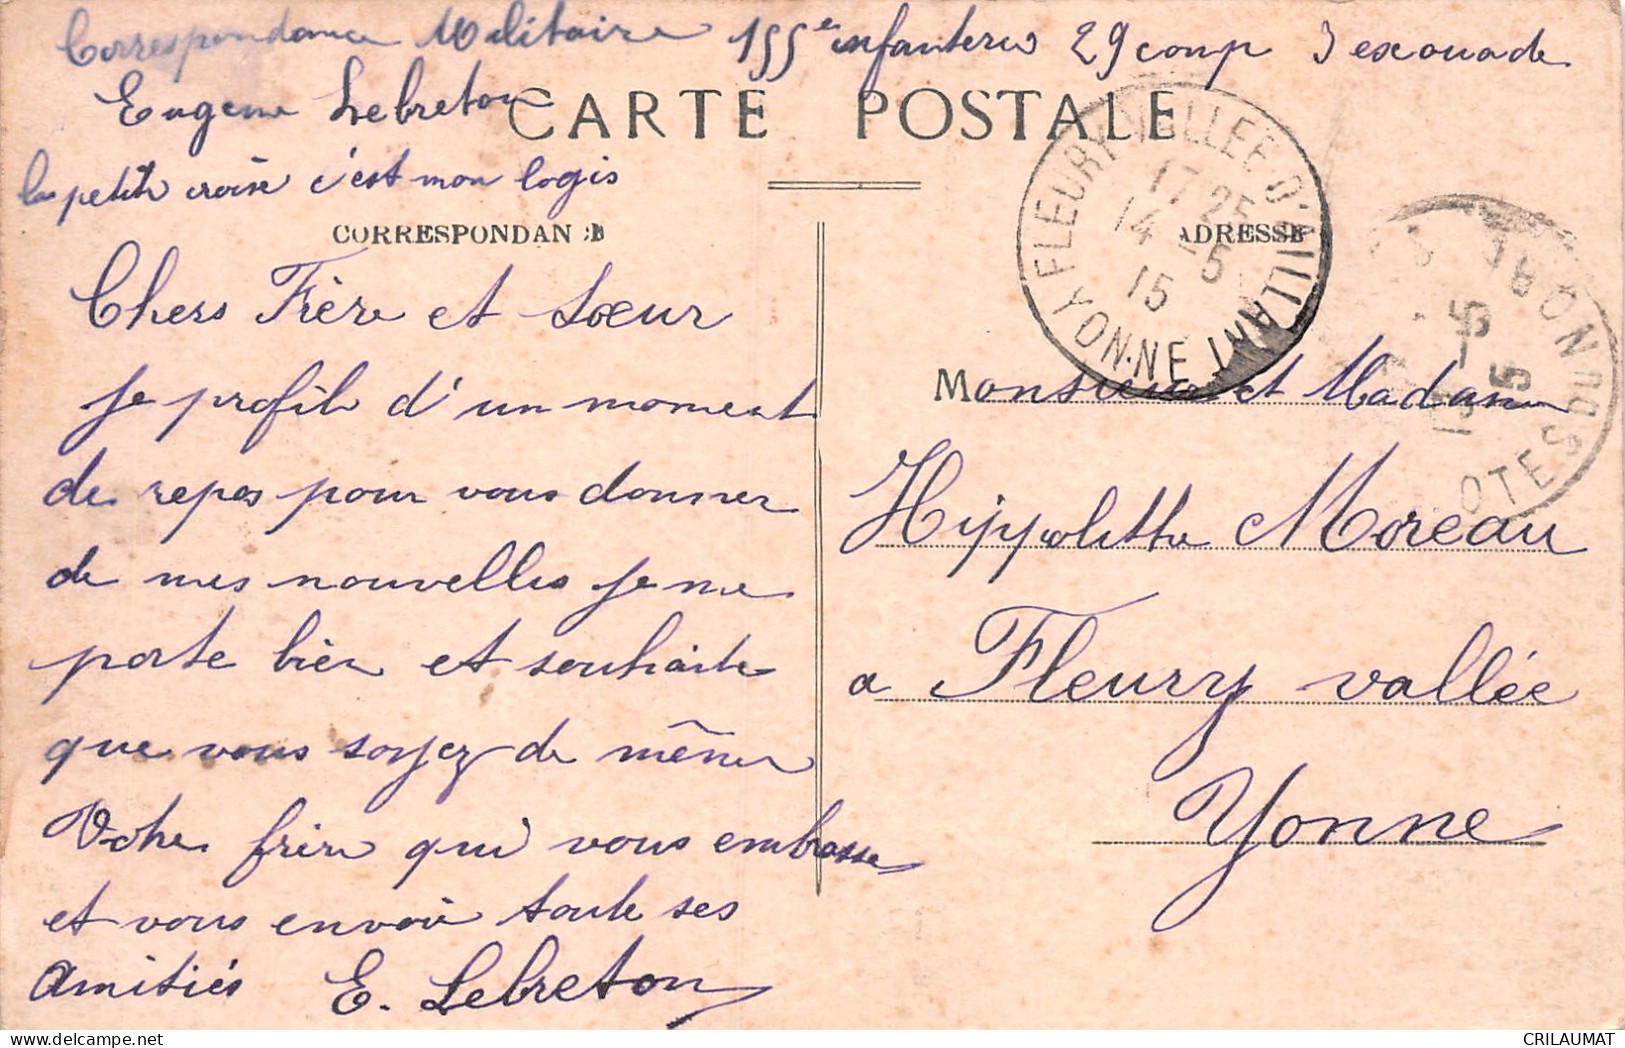 Correspondance Militaire 155e infanterie 29 comp 3 escouade
Eugene Lebreton
CARTE POSTALE
la petite croix c'est mon logis
CORRESPONDAN
ADRESSE
Chers Frère et Sœur
je profite d'un moment
de repos pour vous donner
de mes nouvelles je me
porte bien et souhaite
que vous soyez de même
Votre frère qui vous embrasse
et vous envoie toute ses
amitiés E. Lebreton
FLEURY-VALLEE-D'AILLANT
17 25
14 - 5
15
YONNE
OTES DU NORD
Monsieur et Madame
Hippolitte Moreau
a Fleury vallée
Yonne
CRILAUMAT